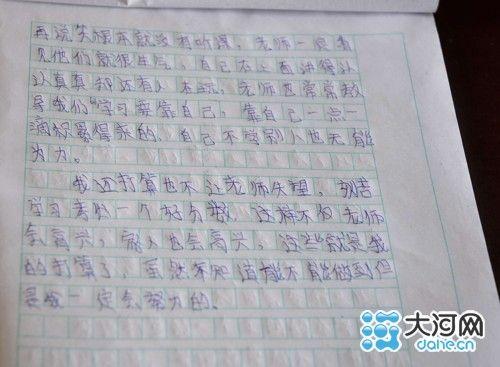 再说笑根本就没有听课，老师一定看
见他们就很生气，自己在上面讲得认
认真真却还有人在玩，老师也常常教
导我们“学习要靠自己，靠自己一点一
滴积累得来的，自己不学别人也无能
为力。
我还打算也不让老师失望，刻苦
学习考出一个好分数，这样不仅老师
会高兴，家人也会高兴，这些就是我
的打算了，虽然不知道能不能做到但
是我一定会努力的。
大河网
dahe.cn